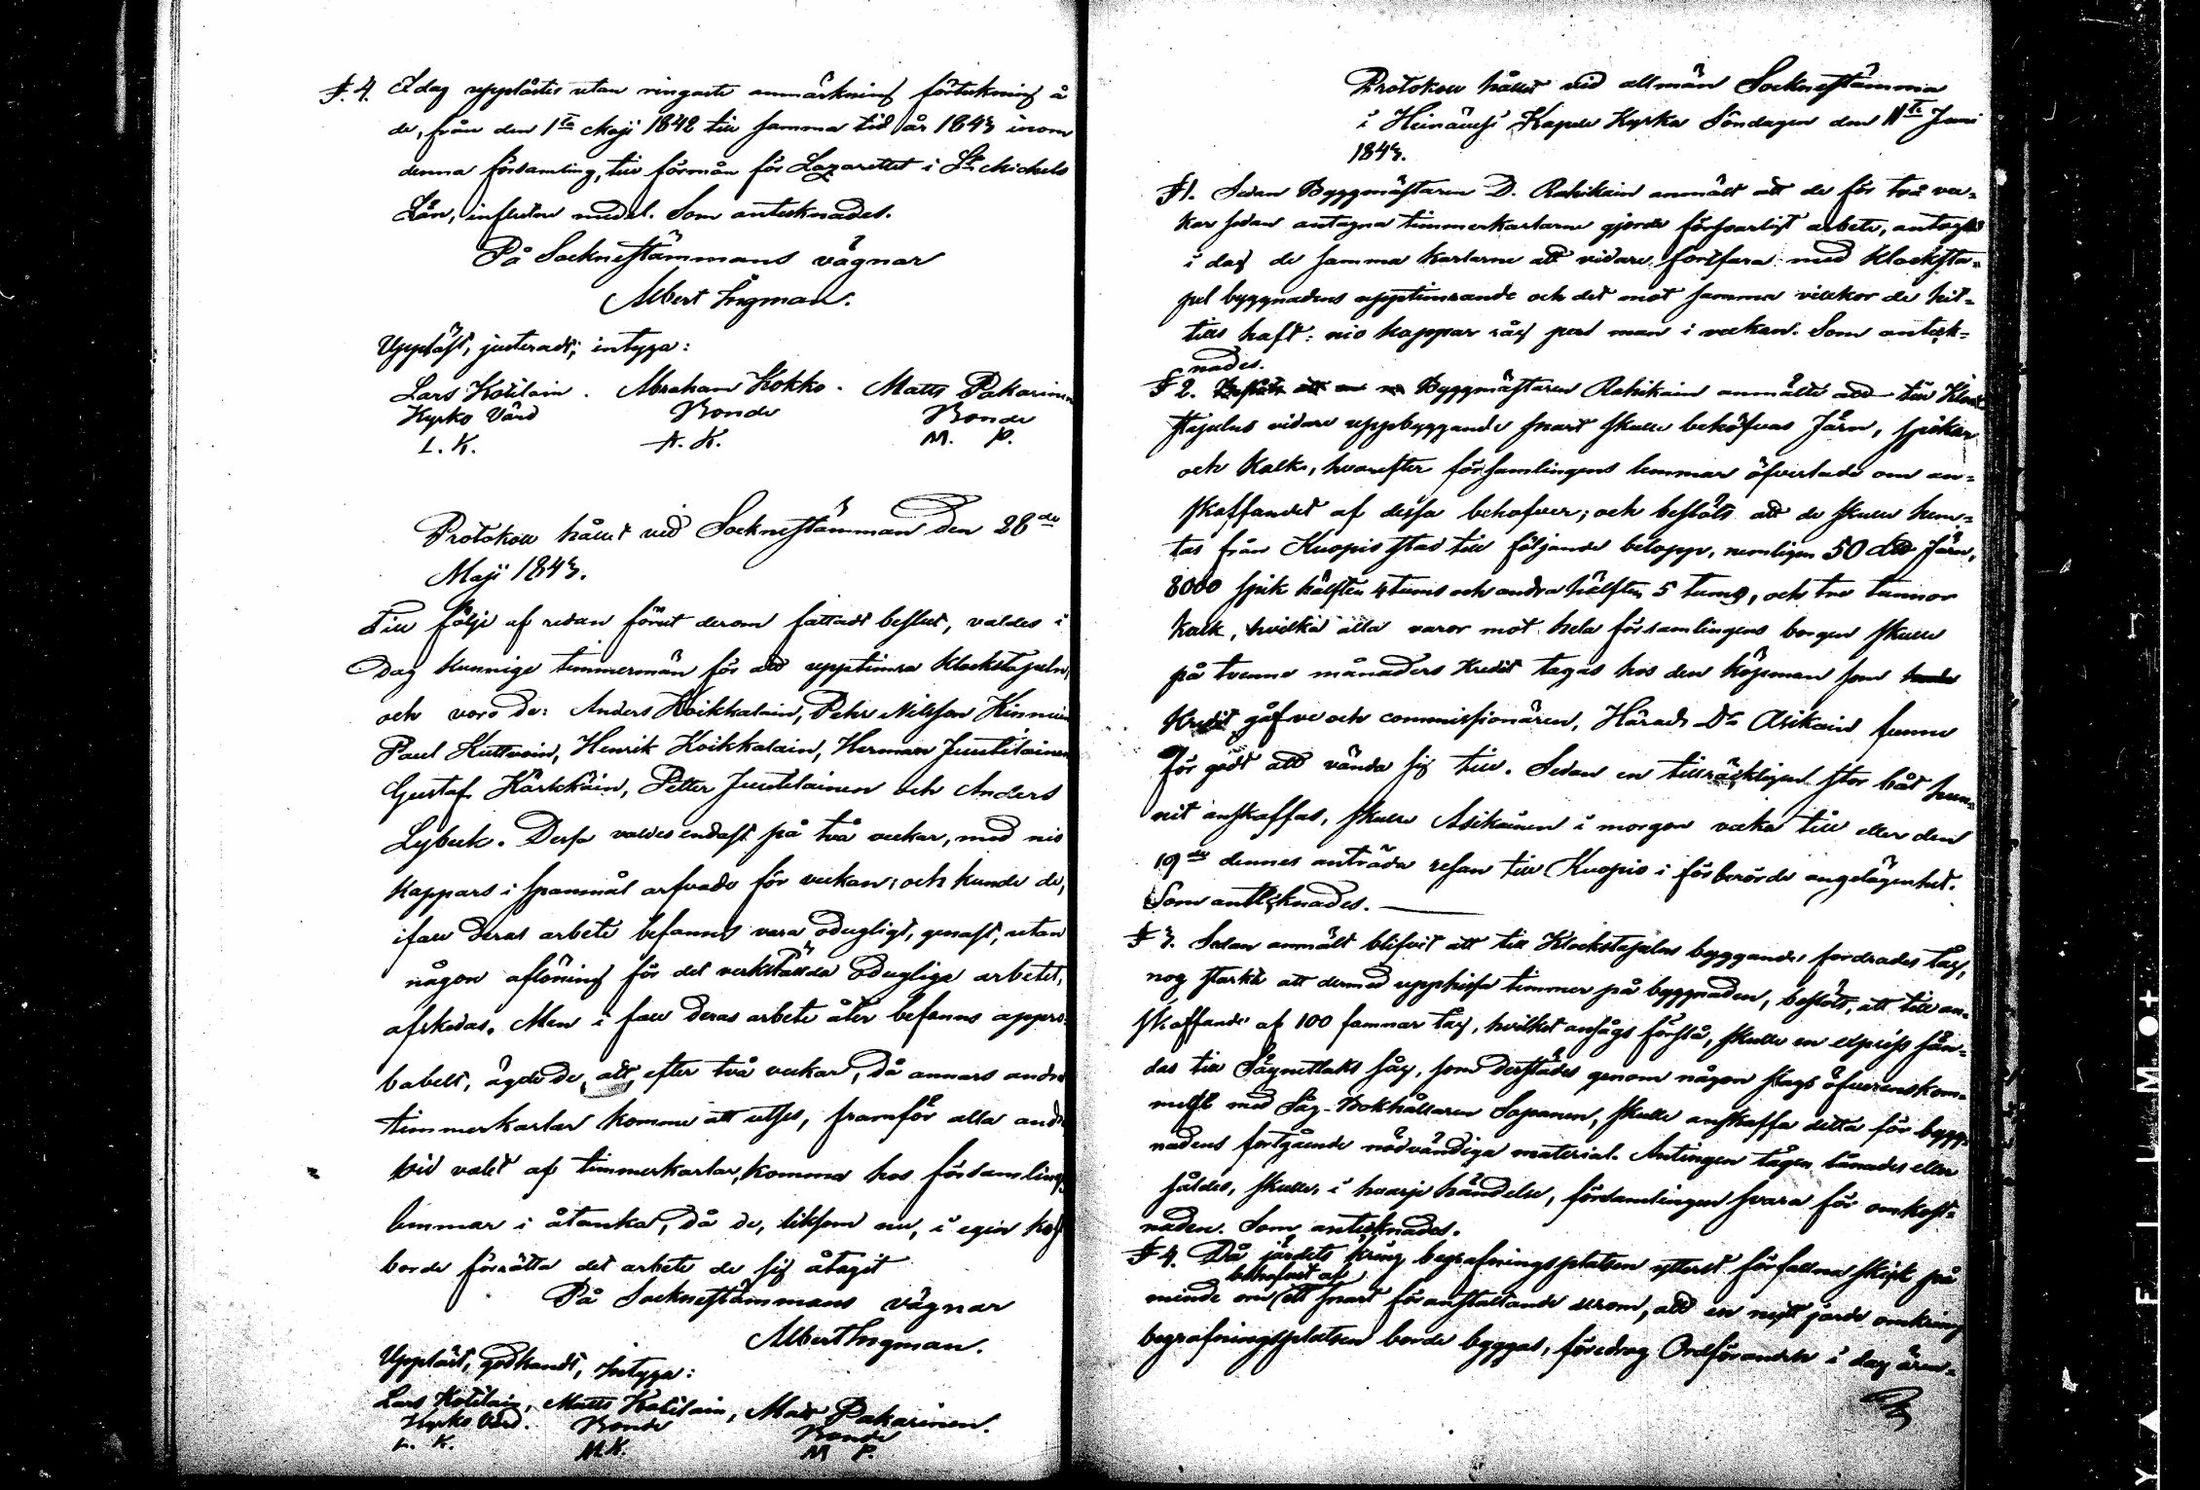 §. 4. I dag upplästes utan ringaste anmärkning förteckning å
de, från den 1ta Maji 1842 till samma tid år 1843 inom
denna församling, till förmån för Lazarettet i St Michels
Län, influtne medel. Som antecknades.
På Sockneståmmans vägnar
Albert Ingman.
Uppläst, justeradt, intyga:
Lars Kotilain. Abraham Kokko. Matts Pakarinen
Kyrko Värd Bonde Bonde
L. K. A. K. M. P.
Protokoll hållit vid Sockneståmman den 28de
Maji 1843.
Till följe af redan förut derom fattadt beslut, valdes i
dag kunnige timmermän för att upptimra Klockstapeln,
och voro de: Anders Koikkalain, Pehr Nilsson Kinnuin
Paul Kuttvoin, Henrik Koikkalain, Herman Juutilainen
Gustaf Kärkkäin, Petter Juutilainen och Anders
Lybeck. Desse valdes endast på två veckor, med nio
kappars i spanmål arfvode för veckan; och kunde de,
ifall deras arbete befanns vara odugligt, genast, utan
någon aflöning för det verkställda odugliga arbetet,
afskedas. Men i fall deras arbete åter befanns appro-
babelt, ägde de, att, efter två veckor, då annars andre
timmerkarlar komme att utses, framför alla andra
vid valet af timmerkarlar, komma hos församlings
lemmar i åtanka, då de, liksom nu, i egin kost
borde förrätta det arbete de sig åtagit
På Sockneståmmans vägnar
Albert Ingman.
Uppläst, godkändt, intyga:
Lars Kotilain, Matts Kotilain, Matts Pakarinen.
Kyrko Värd. Bonde Bonde
L. K. M. K. M P.
Protokoll hållit vid allmän Socknestämma
i Heinävesi Kapell Kyrka Söndagen den 11te Juni
1843.
§1. Sedan Byggmästaren D. Rahikain anmält att de för två vec-
kor sedan antagna timmerkarlarne gjorde försvarligt arbete, antogs
i dag de samma karlarne att vidare fortfara med Klocksta-
pel byggnadens upptimrande och det mot samma villkor de hit-
tills haft: nio kappar råg per man i veckan. Som anteck-
nades.
§ 2. Byggmästaren Rahikain anmälte att till Klock
stapelns vidare uppbyggande snart skulle behöfvas Järn, spikar
och Kalk, hvarefter församlingens lemmar öfverlade om an-
skaffandet af dessa behofver; och beslöts att de skulle hem-
tas från Kuopio stad till följande belopp, nemligen 50 Järn,
8000 spik hälften 4 tums och andra hälften 5 tums, och tre tunnor
Kalk, hvilka alla varor mot hela församlingens borgen skulle
på tvenne månaders Kredit tagas hos den köpman som
Kredit gåfve och commissionären, Härads Dn Asikain funne
för godt att vända sig till. Sedan en tillräckligen stor båt hun-
nit anskaffas, skulle Asikainen i morgon vecka till eller den
19de dennes anträda resan till Kuopio i förberörde angelägenhet.
Som antecknades.
§ 3. Sedan anmält blifvit att till Klockstapelns byggande fordrades tåg,
nog starka att dermed upphissa timmer på byggnaden, beslöts, att till an-
skaffande af 100 famnar tåg, hvilket ansågs förslå, skulle en express sän-
das till såg, som derstädes genom någon slags öfverenskom-
melse med Såg-Bokhållaren Sapanen, skulle anskaffa detta för bygg-
nadens fortgående nödvändiga material. Antingen tågen lånades eller
såldes, skulle, i hvarje händelse, församlingen svara för omkost-
naden. Som antecknades.
§ 4. Då järdets kring begrafningsplatsen ytterst förfallna skick på
behofvet af
minde om ett snart föranstaltande derom, att en nytt järde omkring
begrafningsplatsen borde byggas, föredrog Ordföranden i dag ären-